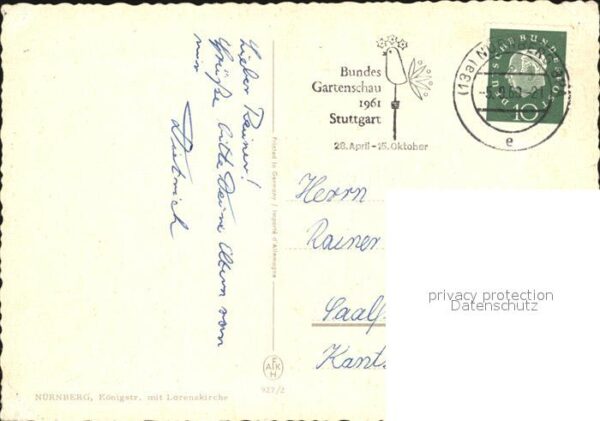 Lieber Rainer!
Grüße bitte Deine Eltern von
mir
Dietrich
Bundes
Gartenschau
1961
Stuttgart
28. April - 15. Oktober
(13a) NÜRNBERG
e
DEUTSCHE BUNDESPOST
10
Printed in Germany / Imprimé d'Allemagne
Herrn
Rainer
Saalf
Kant
privacy protection
Datenschutz
AFKH
927/2
NÜRNBERG, Königstr. mit Lorenzkirche